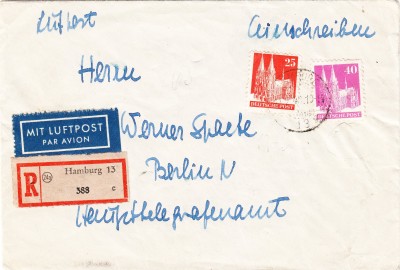 Luftpost Einschreiben
Herrn
25
DEUTSCHE POST
40
DEUTSCHE POST
MIT LUFTPOST
PAR AVION
Werner Spaete
Berlin N
Haupttelegrafenamt
R
24a
Hamburg 13
388 c